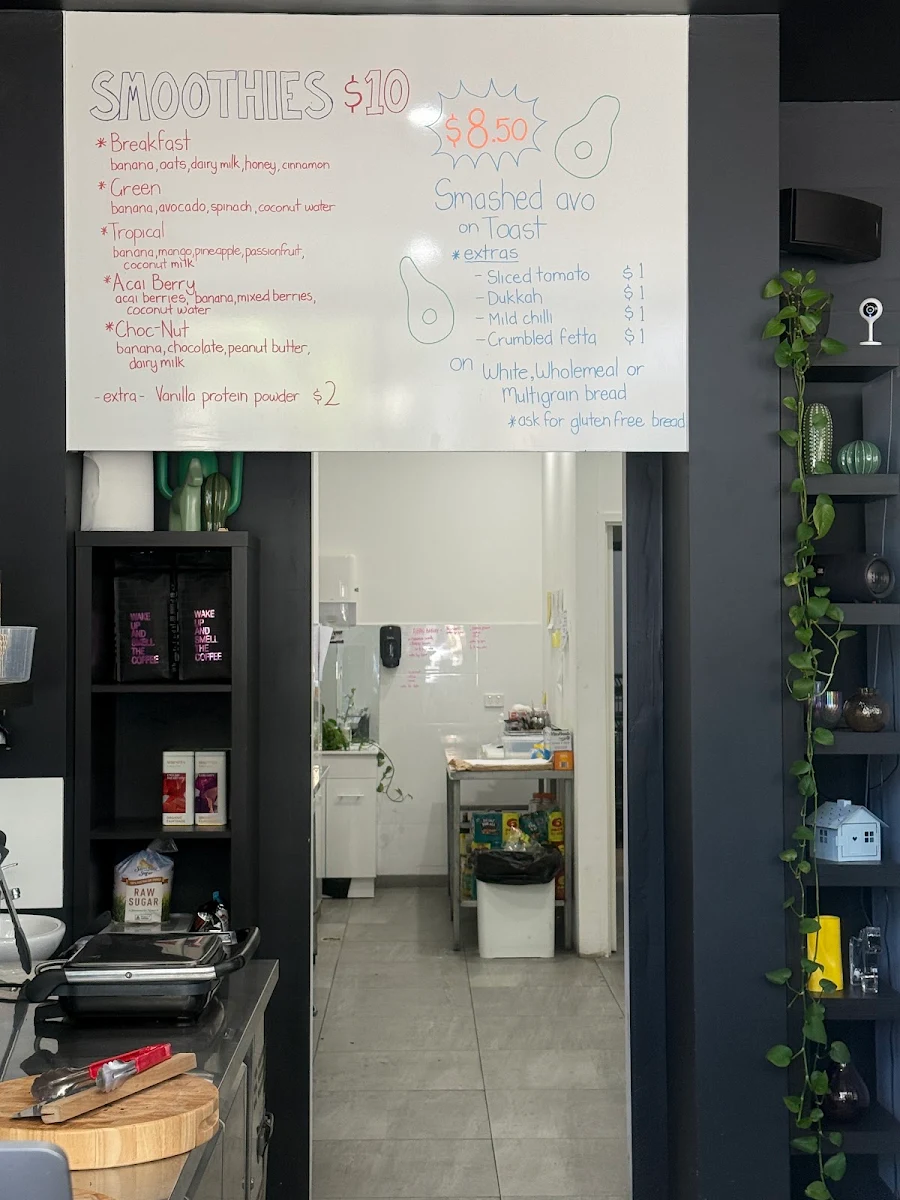 SMOOTHIES $10
*Breakfast
banana, oats, dairy milk, honey, cinnamon
*Green
banana, avocado, spinach, coconut water
*Tropical
banana, mango, pineapple, passionfruit,
coconut milk
*Acai Berry
acai berries, banana, mixed berries,
coconut water
*Choc-Nut
banana, chocolate, peanut butter,
dairy milk
-extra- Vanilla protein powder $2
$8.50
Smashed avo
on Toast
*extras
- Sliced tomato $1
- Dukkah $1
- Mild chilli $1
- Crumbled fetta $1
on White, Wholemeal or
Multigrain bread
*ask for gluten free bread
WAKE
UP
AND
SMELL
THE
COFFEE
WAKE
UP
AND
SMELL
THE
COFFEE
RAW
SUGAR